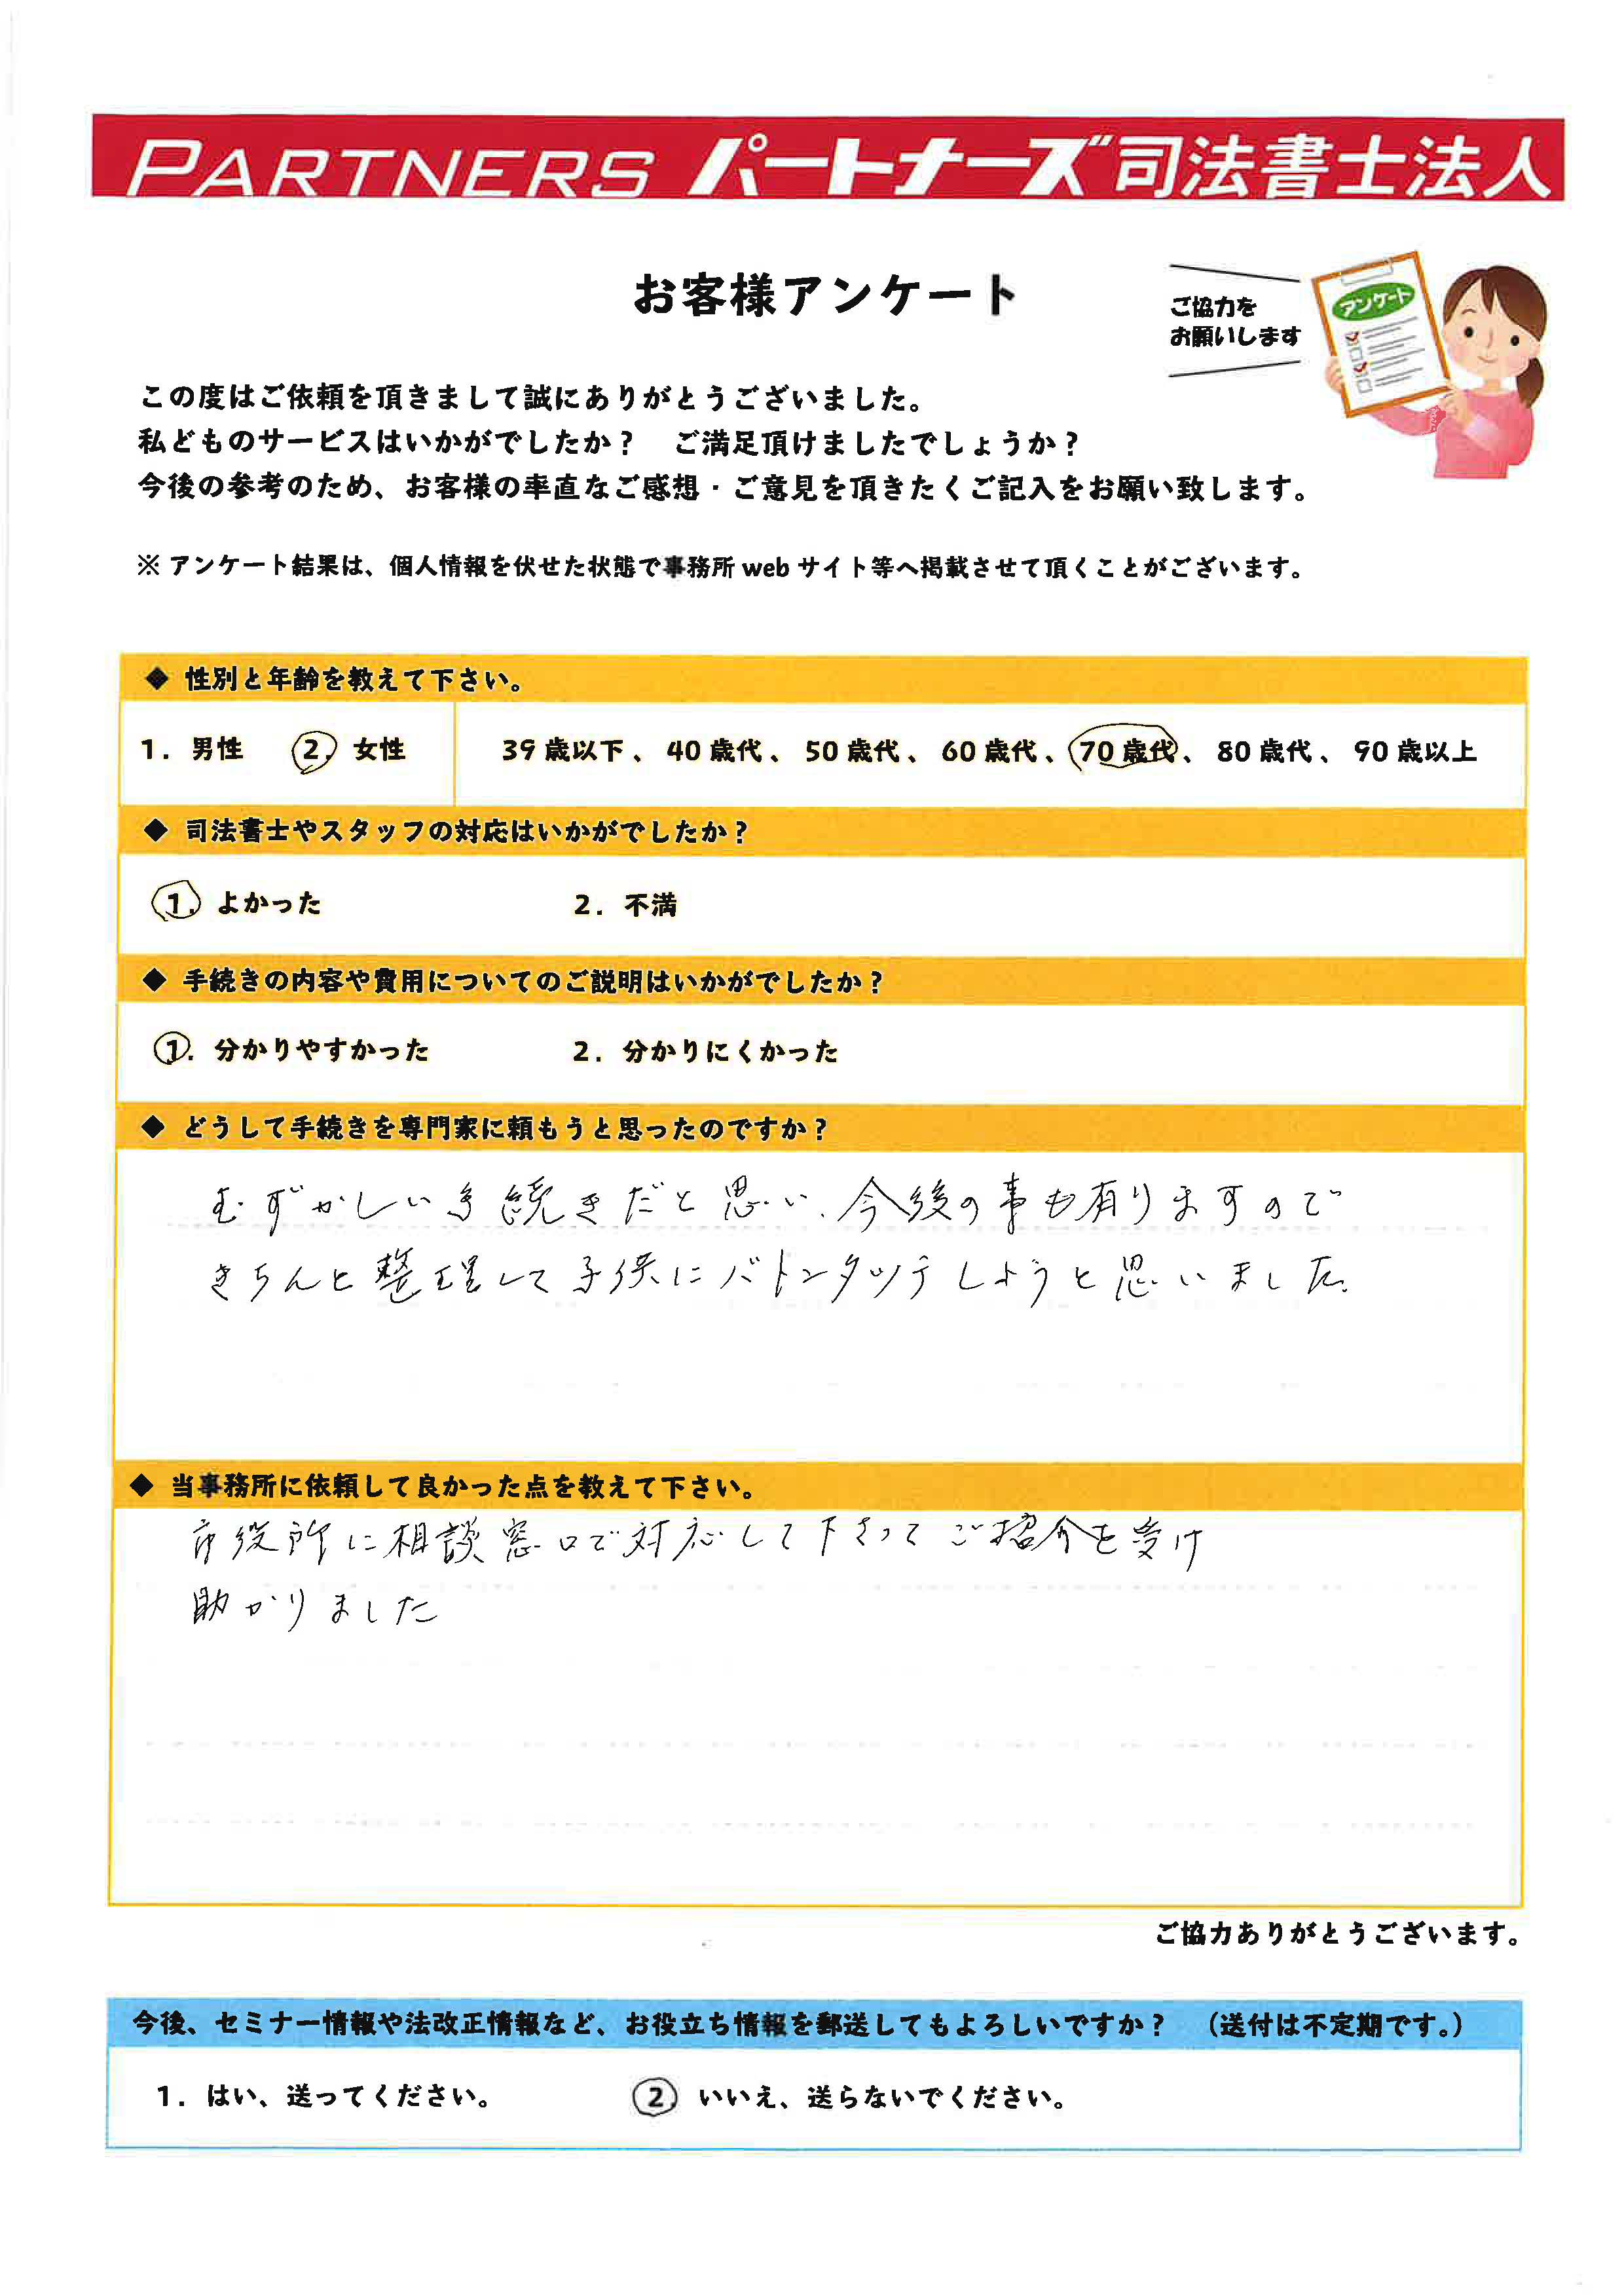 PARTNERS パートナーズ司法書士法人
お客様アンケート
ご協力を
お願いします
アンケート
この度はご依頼を頂きまして誠にありがとうございました。
私どものサービスはいかがでしたか？　ご満足頂けましたでしょうか？
今後の参考のため、お客様の率直なご感想・ご意見を頂きたくご記入をお願い致します。
※ アンケート結果は、個人情報を伏せた状態で事務所 web サイト等へ掲載させて頂くことがございます。
◆ 性別と年齢を教えて下さい。
1. 男性　2. 女性　39 歳以下、 40 歳代、 50 歳代、 60 歳代、 70 歳代、 80 歳代、 90 歳以上
◆ 司法書士やスタッフの対応はいかがでしたか？
1. よかった　2. 不満
◆ 手続きの内容や費用についてのご説明はいかがでしたか？
1. 分かりやすかった　2. 分かりにくかった
◆ どうして手続きを専門家に頼もうと思ったのですか？
むずかしい手続きだと思い、今後の事も有りますので
きちんと整理して子供にバトンタッチしようと思いました。
◆ 当事務所に依頼して良かった点を教えて下さい。
市役所に相談窓口で対応して下さってご紹介を受け
助かりました
ご協力ありがとうございます。
今後、セミナー情報や法改正情報など、お役立ち情報を郵送してもよろしいですか？　（送付は不定期です。）
1. はい、送ってください。　2. いいえ、送らないでください。